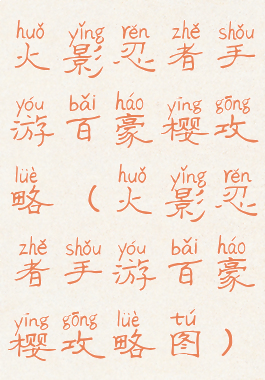 huǒ yǐng rěn zhě shǒu
火影忍者手
yóu bǎi háo yīng gōng
游百豪樱攻
lüè huǒ yǐng rěn
略（火影忍
zhě shǒu yóu bǎi háo
者手游百豪
yīng gōng lüè tú
樱攻略图）